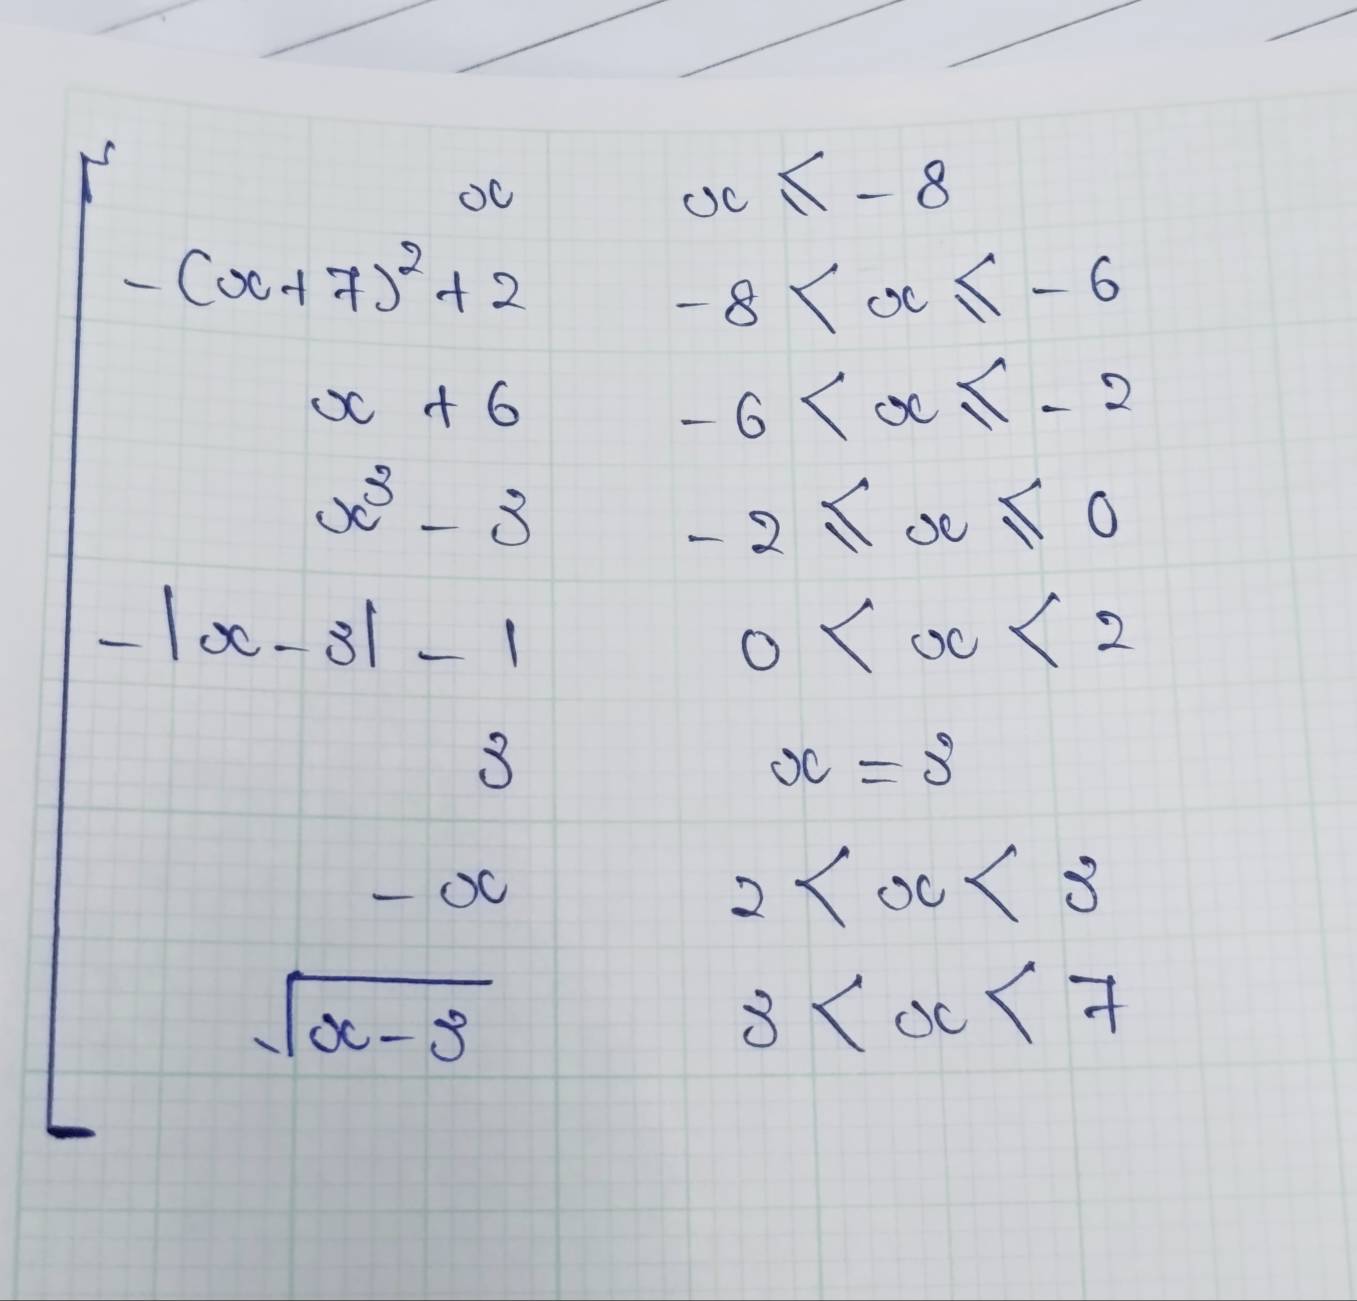 x x ⩽ - 8
-(x+7)² + 2 -8 < x ⩽ - 6
x + 6 -6 < x ⩽ - 2
x³ - 3 -2 ⩽ x ⩽ 0
-|x-3| - 1 0 < x < 2
3 x = 3
-x 2 < x < 3
√(x-3) 3 < x < 7